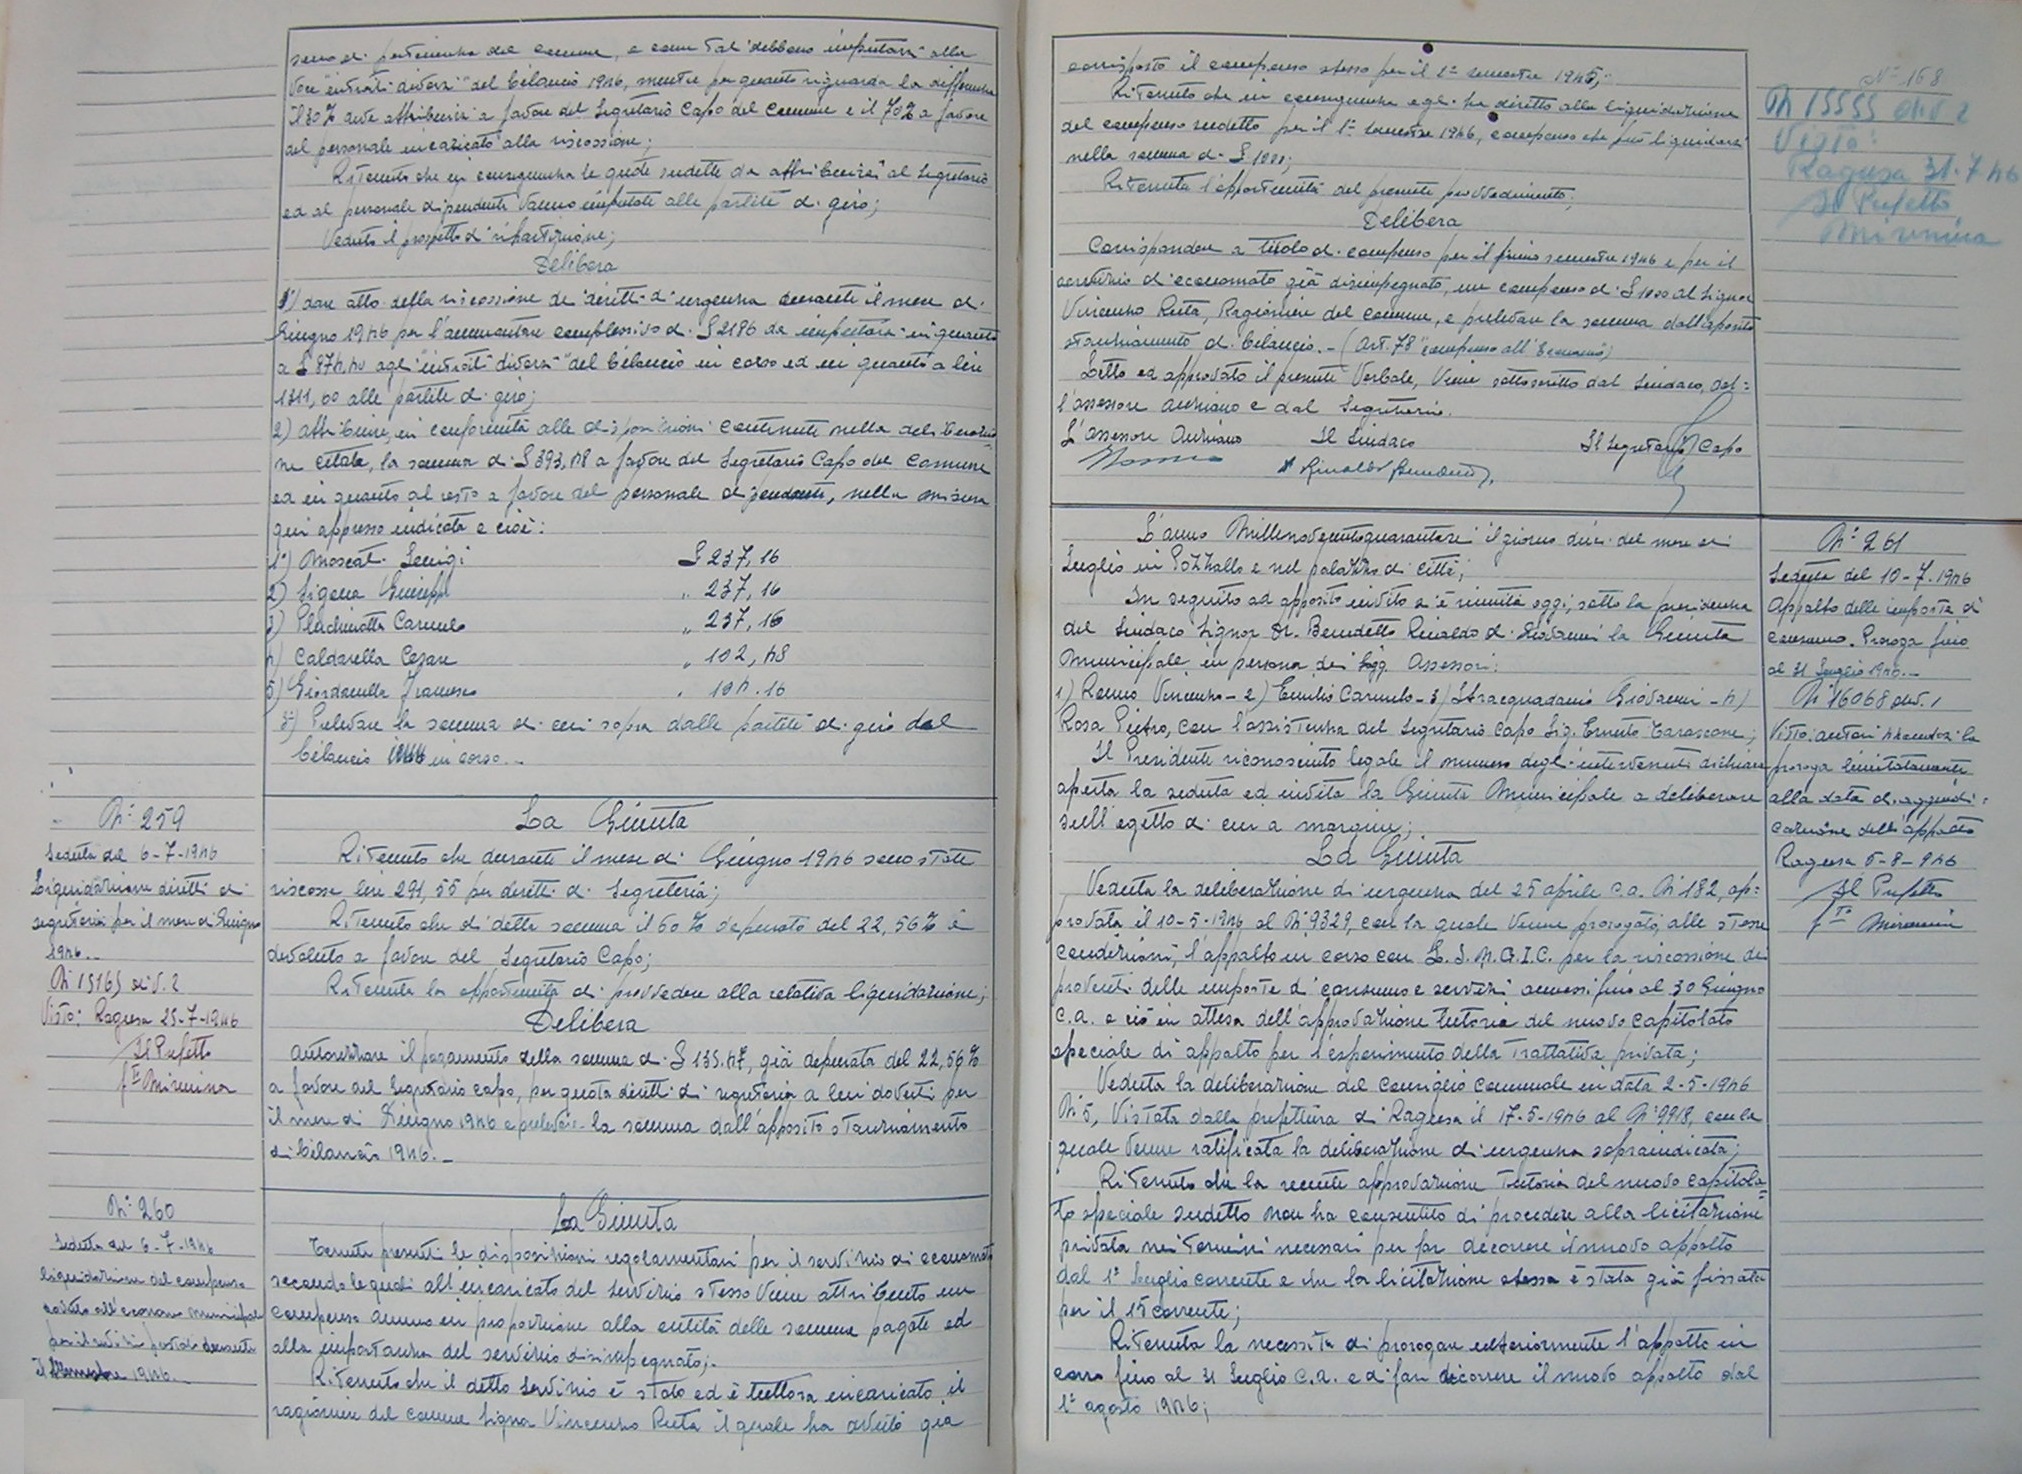 sono di pertinenza del comune, e come tali debbono imputarsi alla
voce "entrate diverse" del bilancio 1946, mentre per quanto riguarda la differenza
il 30% deve attribuirsi a favore del Segretario Capo del Comune e il 70% a favore
del personale incaricato alla riscossione;
Ritenuto che in conseguenza le quote sudette da attribuirsi al Segretario
ed al personale dipendente vanno imputate alle partite di giro;
Veduto il prospetto di ripartizione;
Delibera
1°) dare atto della riscossione dei diritti d'urgenza durante il mese di
Giugno 1946 per l'ammontare complessivo di £ 2186 da imputarsi in quanto
a £ 874,40 agli "entrate diverse" del bilancio in corso ed in quanto a lire
1311,60 alle partite di giro;
2) attribuire, in conformità alle disposizioni contenute nella deliberazio
ne citata, la somma di £ 393,48 a favore del Segretario Capo del Comune
ed in quanto al resto a favore del personale dipendente, nella misura
qui appresso indicata e cioè:
1°) Moscati Luigi £ 237,16
2) Sigona Giuseppe " 237,16
3) Plachinotta Carmelo " 237,16
4) Caldarella Cesare " 102,48
5) Giordanella Francesco " 104.16
3°) Prelevare la somma di cui sopra dalle partite di giro del
bilancio 1946 in corso.-
N° 259
Seduta del 6-7-1946
Liquidazione diritti di
segreteria per il mese di Giugno
1946.-
N° 15165 Div. 2
Visto: Ragusa 25-7-1946
Il Prefetto
f.to Mirmina
La Giunta
Ritenuto che durante il mese di Giugno 1946 sono state
riscosse lire 291,55 per diritti di Segreteria;
Ritenuto che di detta somma il 60% depurato del 22,56% è
devoluto a favore del Segretario Capo;
Ritenuta la opportunità di provvedere alla relativa liquidazione;
Delibera
Autorizzare il pagamento della somma di £ 135.47, già depurata del 22,56%
a favore del Segretario capo, per quota diritti di segreteria a lui dovuti per
il mese di Giugno 1946 e prelevare la somma dall'apposito stanziamento
di bilancio 1946.-
N° 260
Seduta del 6-7-1946
Liquidazione del compenso
dovuto all'economo municipale
per il servizio prestato durante
il 1° semestre 1946.-
La Giunta
Tenute presenti le disposizioni regolamentari per il servizio di economato
secondo le quali all'incaricato del servizio stesso viene attribuito un
compenso annuo in proporzione alla entità delle somme pagate ed
alla importanza del servizio disimpegnato;-
Ritenuto che il detto servizio è stato ed è tuttora incaricato il
ragioniere del comune Signor Vincenzo Ruta il quale ha avuto già
corrisposto il compenso stesso per il 2° semestre 1945;
Ritenuto che in conseguenza egli ha diritto alla liquidazione
del compenso sudetto per il 1° semestre 1946, compenso che può liquidarsi
nella somma di £ 1000;
Ritenuta l'opportunità del presente provvedimento;
Delibera
Corrispondere a titolo di compenso per il primo semestre 1946 e per il
servizio di economato già disimpegnato, un compenso di £ 1000 al Signor
Vincenzo Ruta, Ragioniere del comune, e prelevare la somma dall'apposito
stanziamento di bilancio.- (Art. 78 "compenso all'Economo")
Letto ed approvato il presente Verbale, viene sottoscritto dal Sindaco, dal=
l'assessore anziano e dal Segretario.
L'assessore Anziano Il Sindaco Il Segretario Capo
Rinaldo Benedetto
N° 168
N 15555 Div. 2
Visto:
Ragusa 31-7-46
Il Prefetto
Mirmina
L'anno Millenovecentoquarantasei il giorno dieci del mese di
Luglio in Pozzallo e nel palazzo di città;
In seguito ad apposito invito si è riunita oggi, sotto la presidenza
del Sindaco Signor Dr. Benedetto Rinaldo di Giovanni la Giunta
Municipale in persona dei Sigg. Assessori:
1) Romeo Vincenzo - 2) Emilio Carmelo - 3) Stracquadanio Giovanni - 4)
Rosa Pietro, con l'assistenza del Segretario Capo Sig. Ernesto Tarascone;
Il Presidente riconosciuto legale il numero degli intervenuti dichiara
aperta la seduta ed invita la Giunta Municipale a deliberare
sull'oggetto di cui a margine;
N° 261
Seduta del 10-7-1946
Appalto delle imposte di
consumo. Proroga fino
al 31 Luglio 1946.-
N° 16068 Div. 1
Visto: autorizzandosi la
proroga limitatamente
alla data di aggiudi=
cazione dell'appalto
Ragusa 6-8-946
Il Prefetto
f.to Mirmina
La Giunta
Veduta la deliberazione di urgenza del 25 aprile c.a. N° 182, ap=
provata il 10-5-1946 al N° 9329, con la quale venne prorogato, alle stesse
condizioni, l'appalto in corso con L. I. N. G. I. C. per la riscossione dei
proventi delle imposte di consumo e servizi annessi fino al 30 Giugno
c.a. e ciò in attesa dell'approvazione tutoria del nuovo capitolato
speciale di appalto per l'esperimento della trattativa privata;
Veduta la deliberazione del Consiglio comunale in data 2-5-1946
N° 5, Vistata dalla prefettura di Ragusa il 17-5-1946 al N° 9918, con la
quale venne ratificata la deliberazione di urgenza sopraindicata;
Ritenuto che la recente approvazione tutoria del nuovo capitola=
to speciale sudetto non ha consentito di procedere alla licitazione
privata nei termini necessari per far decorrere il nuovo appalto
dal 1° Luglio corrente e che la licitazione stessa è stata già fissata
per il 15 corrente;
Ritenuta la necessità di prorogare ulteriormente l'appalto in
corso fino al 31 Luglio c.a. e di fare decorrere il nuovo appalto dal
1° agosto 1946;